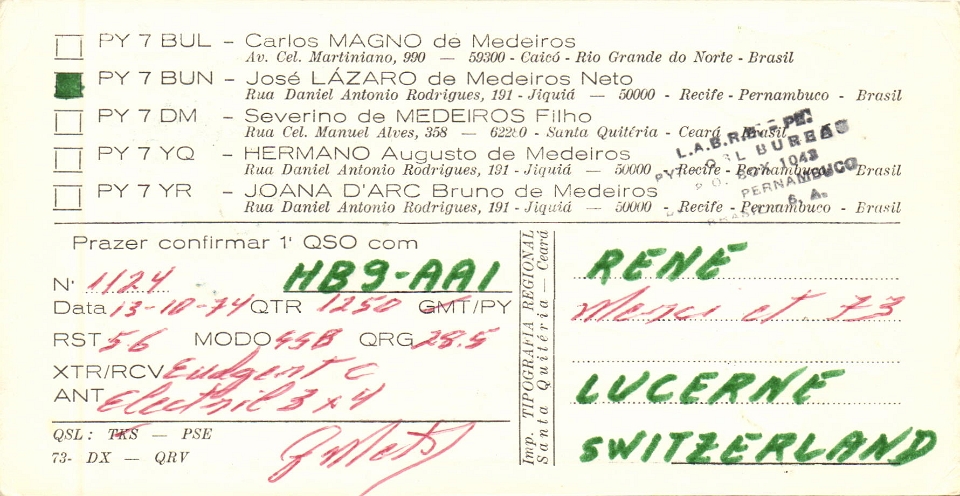 PY 7 BUL - Carlos MAGNO de Medeiros
Av. Cel. Martiniano, 990 — 59300 - Caicó - Rio Grande do Norte - Brasil
PY 7 BUN - José LÁZARO de Medeiros Neto
Rua Daniel Antonio Rodrigues, 191 - Jiquiá — 50000 - Recife - Pernambuco - Brasil
PY 7 DM - Severino de MEDEIROS Filho
Rua Cel. Manuel Alves, 358 — 62280 - Santa Quitéria - Ceará - Brasil
PY 7 YQ - HERMANO Augusto de Medeiros
Rua Daniel Antonio Rodrigues, 191 - Jiquiá — 50000 - Recife - Pernambuco - Brasil
PY 7 YR - JOANA D'ARC Bruno de Medeiros
Rua Daniel Antonio Rodrigues, 191 - Jiquiá — 50000 - Recife - Pernambuco - Brasil
L.A.B.R.E. - PE.
QSL BUREAU
P.O. BOX 1043
PERNAMBUCO
S. A.
Prazer confirmar 1' QSO com
Nº 1124 HB9-AAI
Data 13-10-74 QTR 1250 GMT/PY
RST 56 MODO SSB QRG 28.5
XTR/RCV C
ANT 3 x 4
QSL: TKS — PSE
73- DX — QRV
Imp. TIPOGRAFIA REGIONAL
Santa Quitéria — Ceará
RENE
Merci et 73
LUCERNE
SWITZERLAND